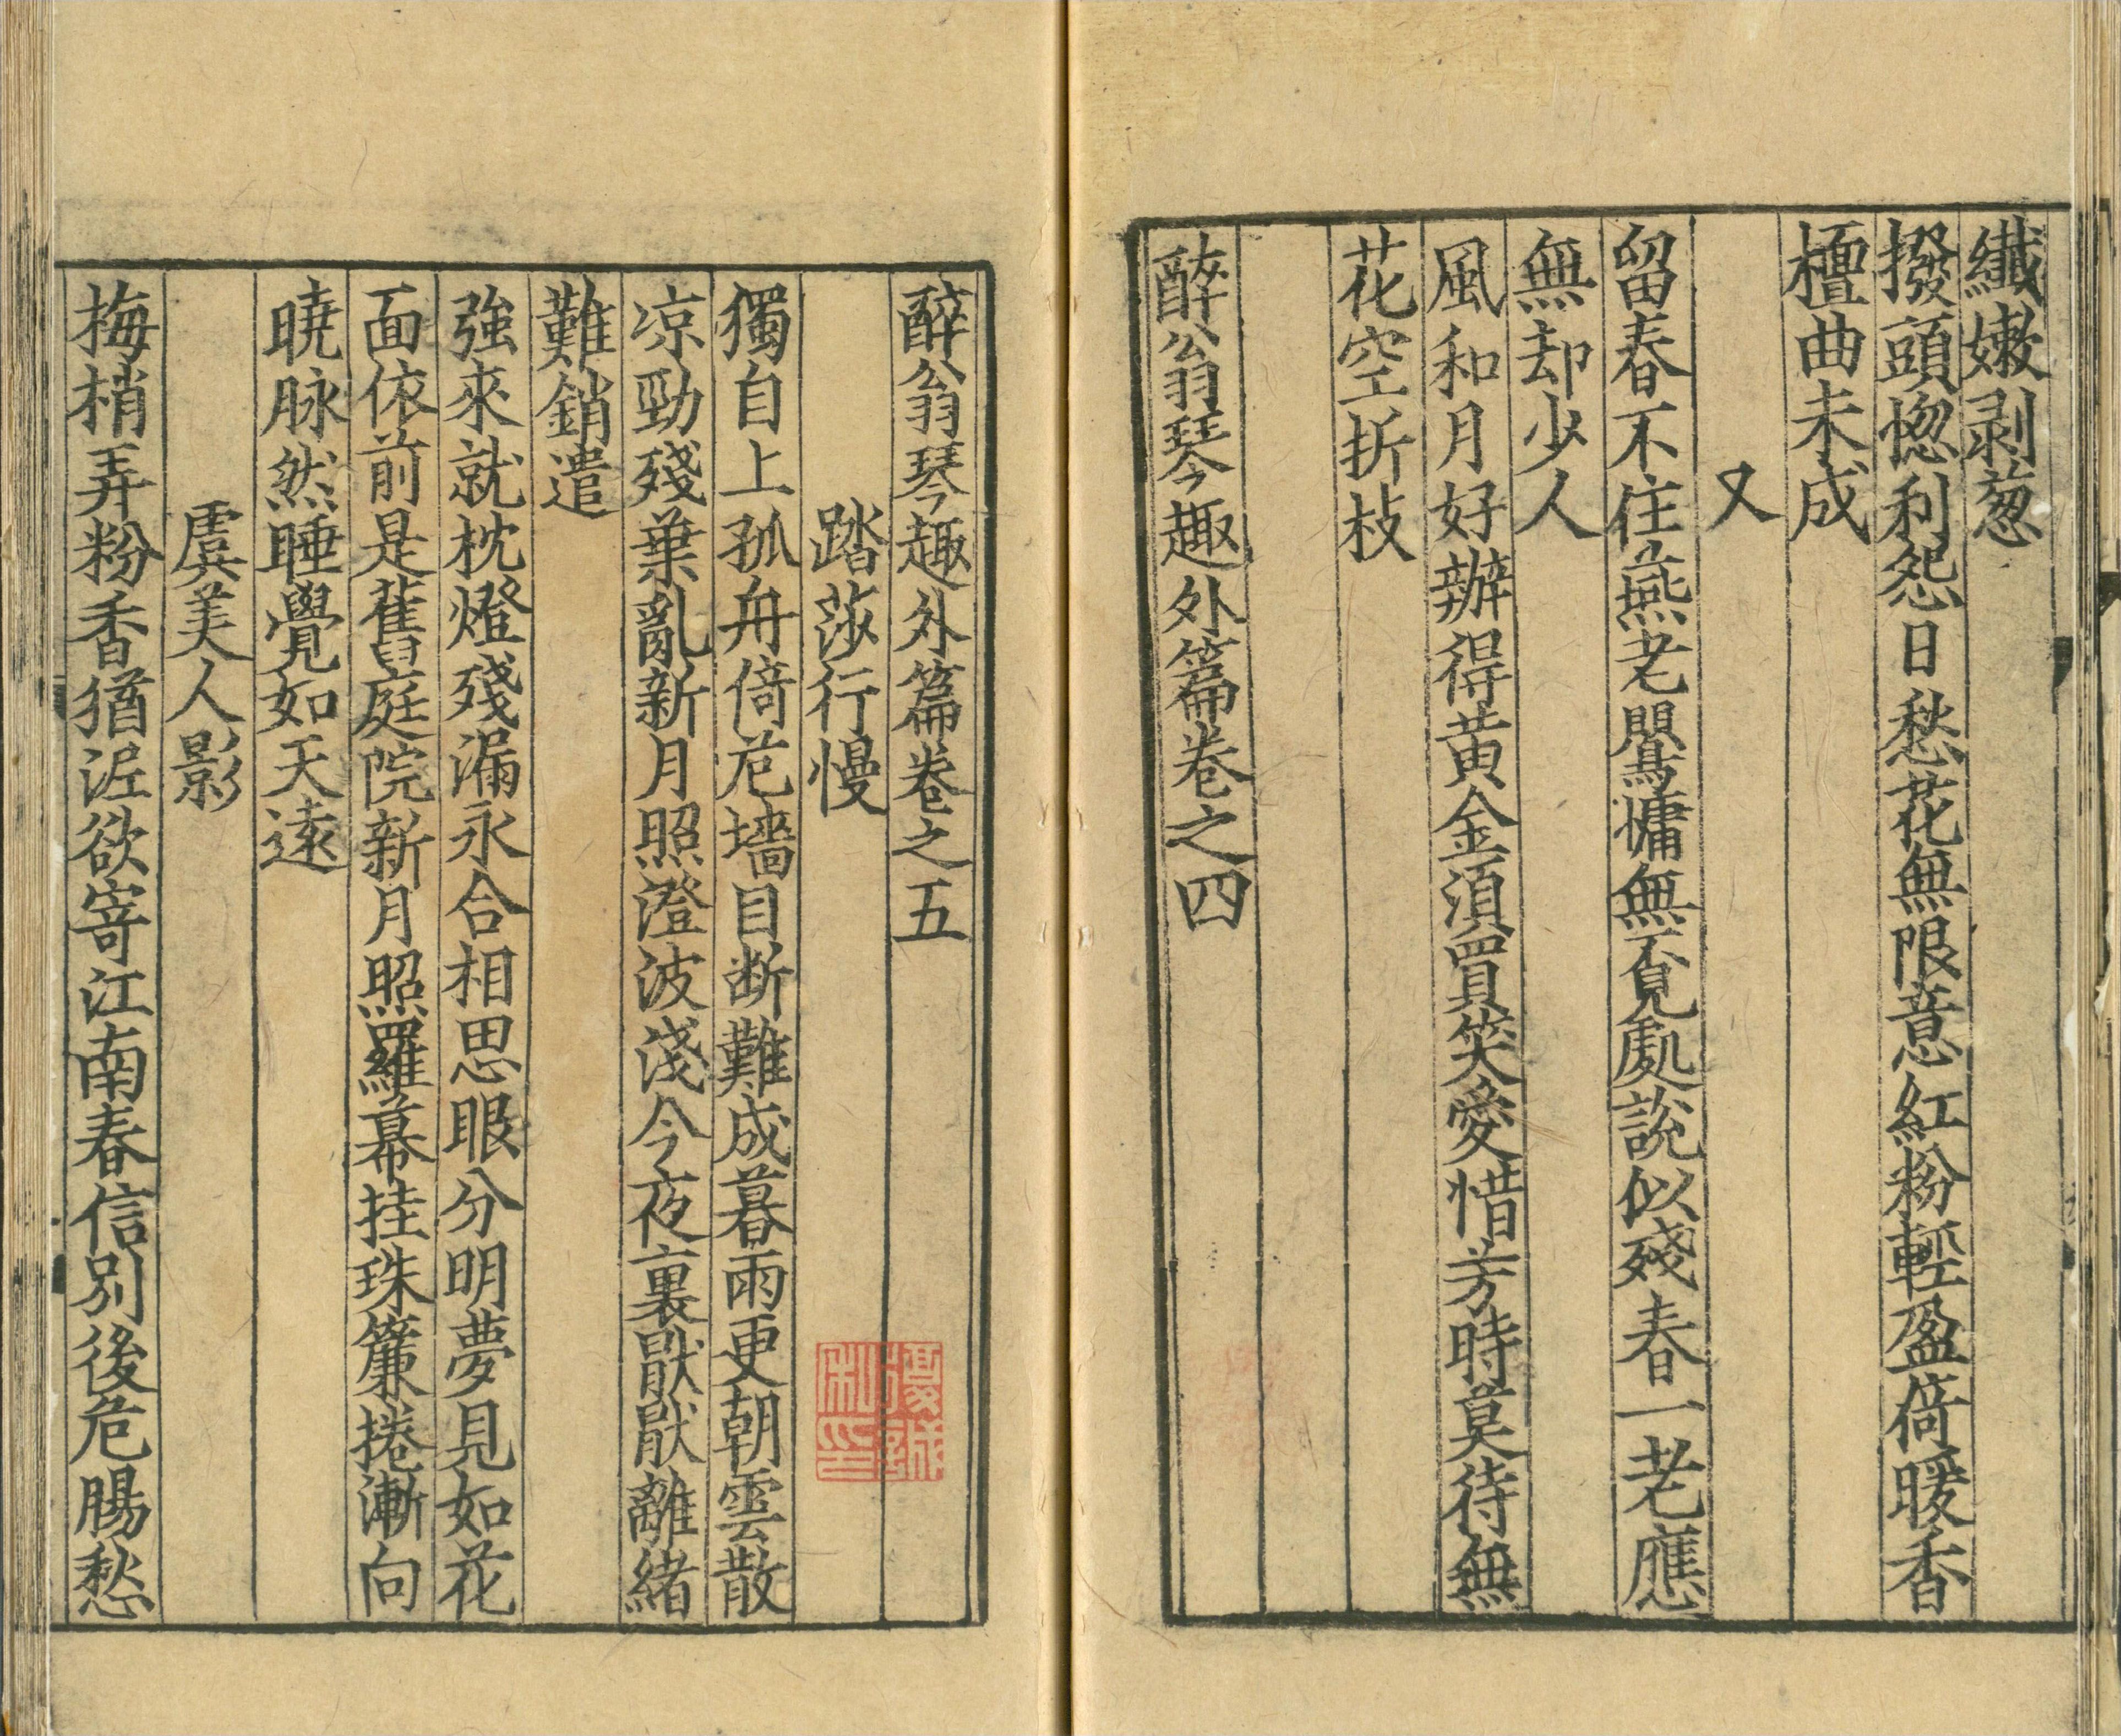 纖嫩剥葱
撥頭惚利怨日愁花無限意紅粉輕盈倚暖香
檀曲未成
又
留春不住燕老鸎慵無覔處說似殘春一老應
無却少人
風和月好辦得黄金湏買笑愛惜芳時莫待無
花空折枝
醉翁琴趣外篇卷之四
醉翁琴趣外篇卷之五
踏莎行慢
獨自上孤舟倚危墻目断難成暮雨更朝雲散
凉勁殘葉亂新月照澄波淺今夜裏猒猒離緒
難銷遣
強來就枕燈殘漏永合相思眼分明夢見如花
面依前是舊庭院新月照羅幕挂珠簾捲漸向
曉脉然睡覺如天遠
虞美人影
梅梢弄粉香猶泥欲寄江南春信别後危腸愁